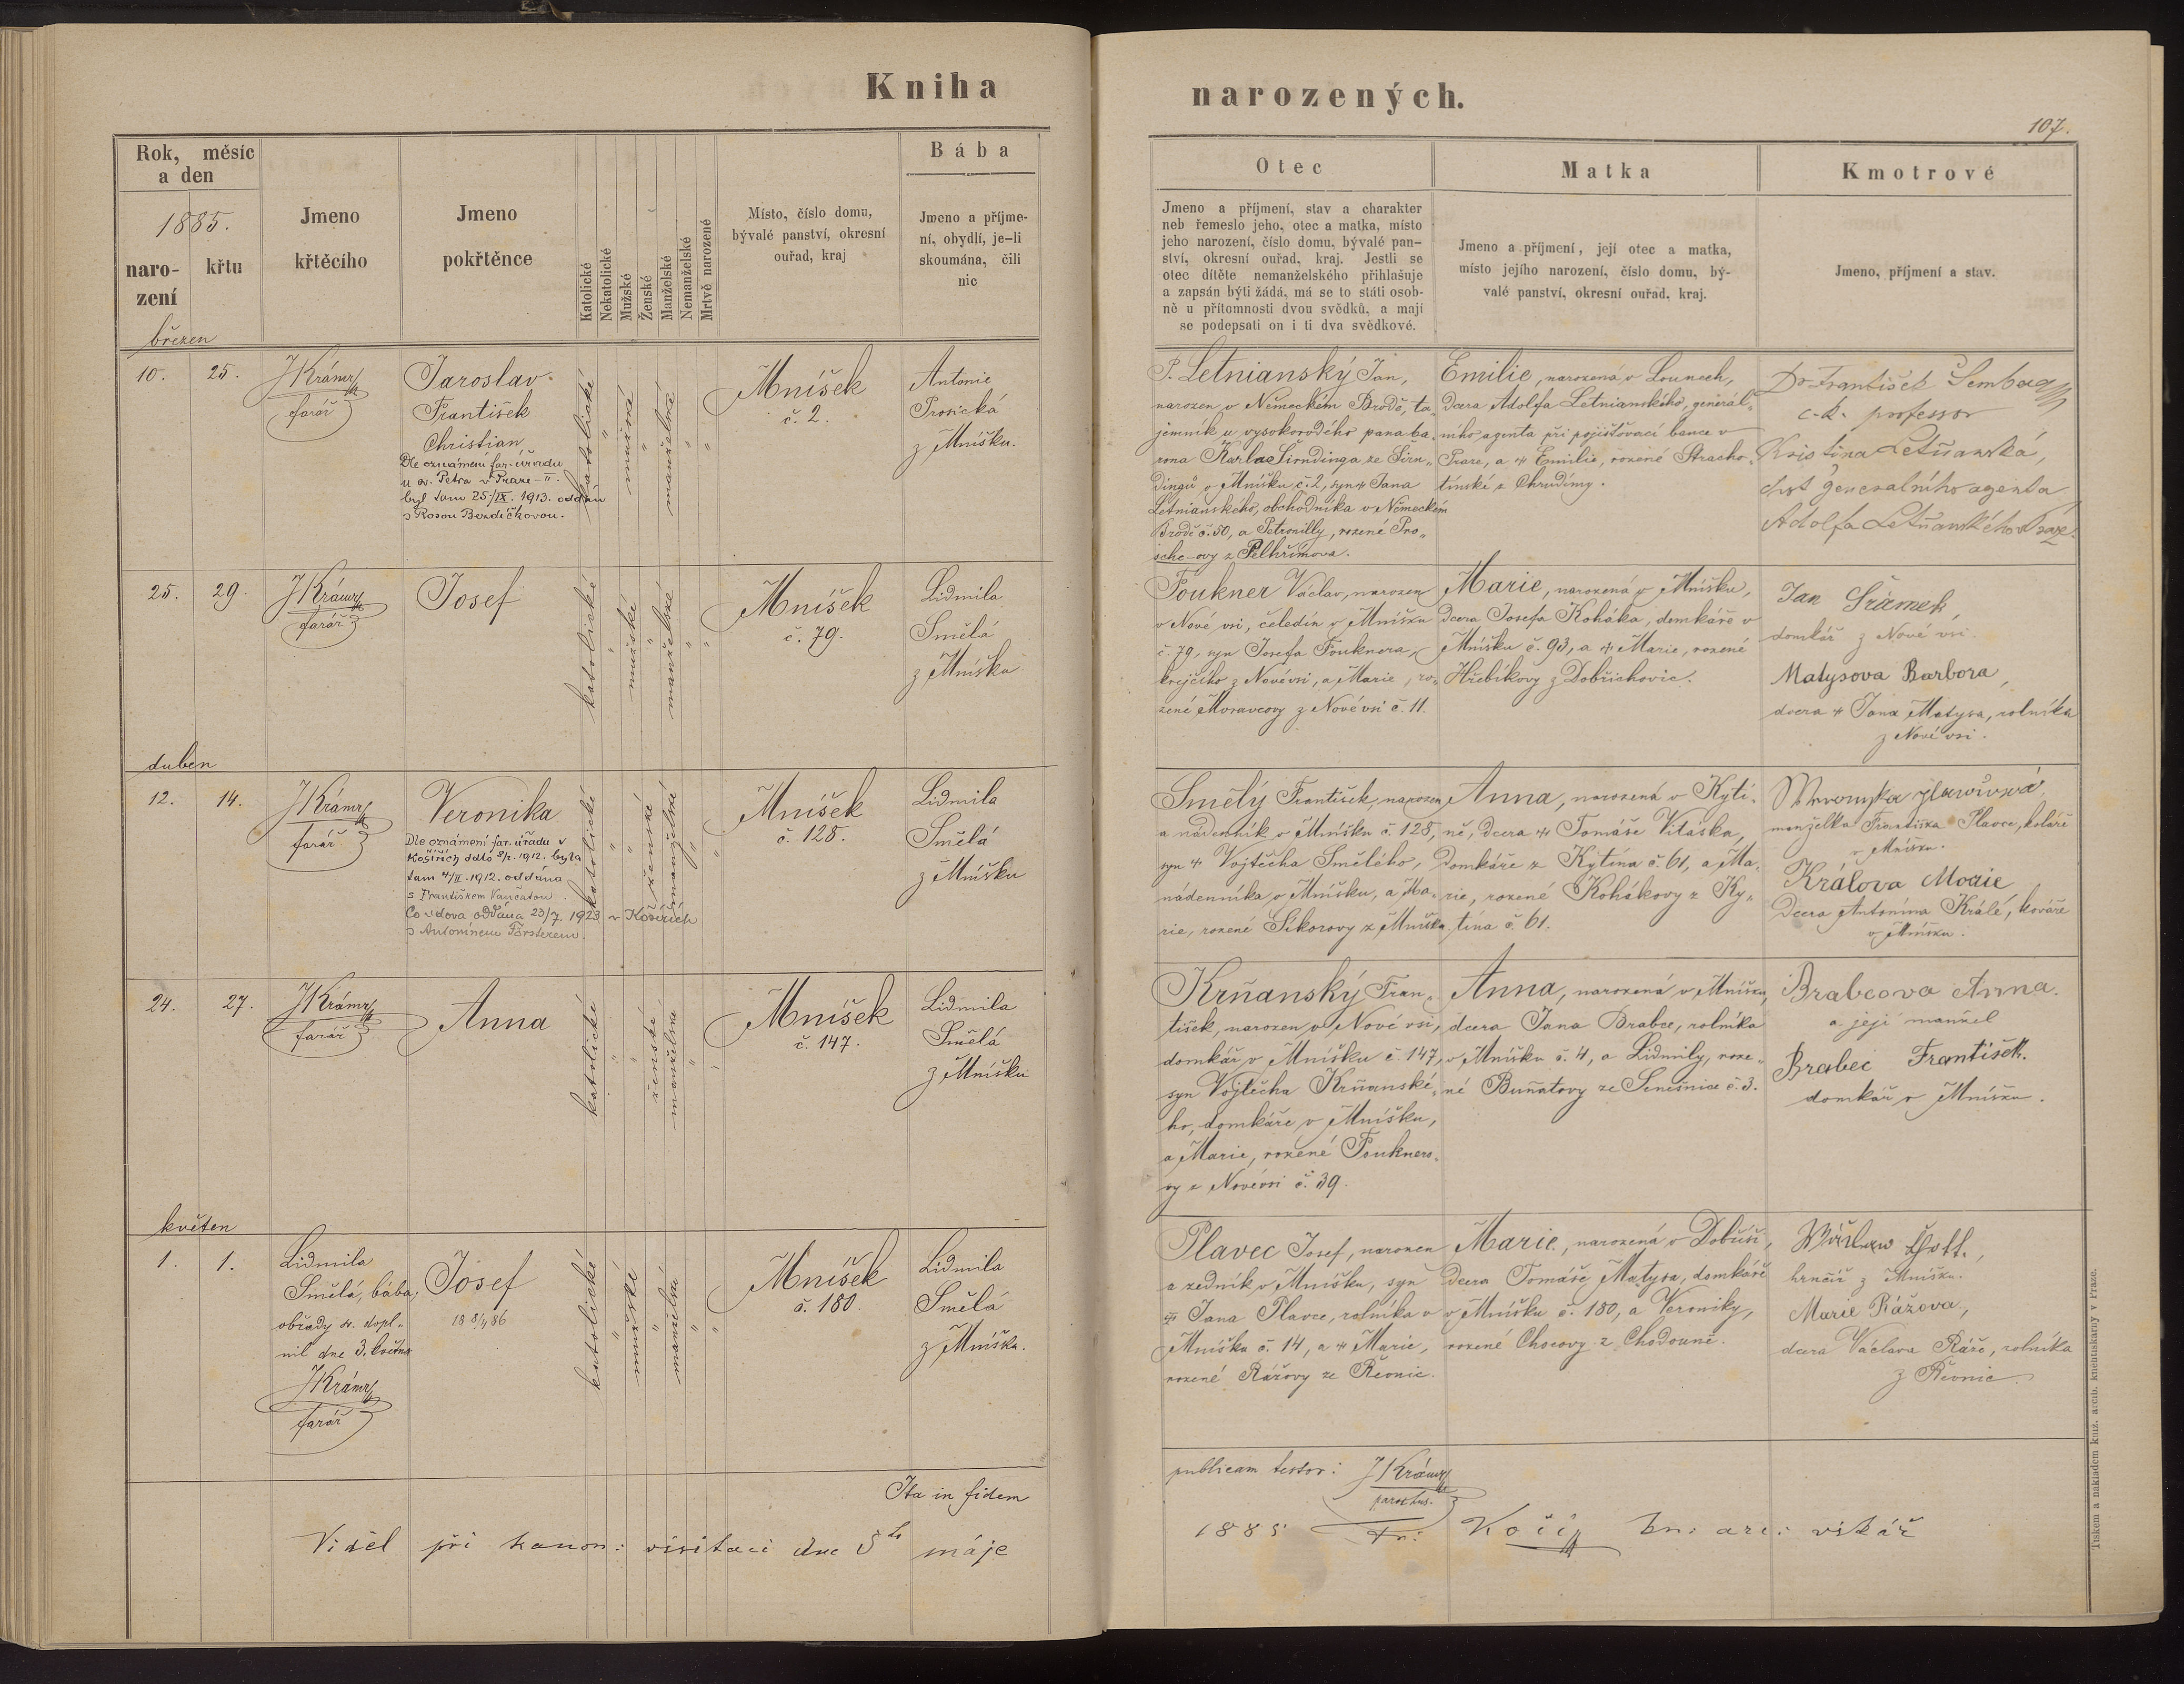 Kniha narozených.
107.
Rok, měsíc
a den
1885.
naro-
zení
křtu
Jmeno
křtěcího
Jmeno
pokřtěnce
Katolické
Nekatolické
Mužské
Ženské
Manželské
Nemanželské
Mrtvě narozené
Místo, číslo domu,
bývalé panství, okresní
ouřad, kraj
Bába
Jmeno a příjme-
ní, obydlí, je-li
skoumána, čili
nic
Otec
Jmeno a příjmení, stav a charakter
neb řemeslo jeho, otec a matka, místo
jeho narození, číslo domu, bývalé pan-
ství, okresní ouřad, kraj. Jestli se
otec dítěte nemanželského přihlašuje
a zapsán býti žádá, má se to státi osob-
ně u přítomnosti dvou svědků, a mají
se podepsati on i ti dva svědkové.
Matka
Jmeno a příjmení, její otec a matka,
místo jejího narození, číslo domu, bý-
valé panství, okresní ouřad, kraj.
Kmotrové
Jmeno, příjmení a stav.
březen
10. 25.
JKrámr
farář
Jaroslav
František
Christian
Dle oznámení far. úřadu
u sv. Petra v Praze-II.
byl tam 25/IX. 1913. oddán
s Rosou Bezdíčkovou.
katolické
mužské
manželské
Mníšek
č. 2.
Antonie
Prosická
z Mníšku.
P. Letnianský Jan,
narozen v Německém Brodě, ta-
jemník u vysokorodého pana ba-
rona Karla Sirndinga ze Sirn-
dingů v Mníšku č. 2, syn Jana
Letnianského, obchodníka v Německém
Brodě č. 50, a Petronilly, rozené Pro-
sche-ovy z Pelhřimova.
Emilie, narozená v Lounech,
dcera Adolfa Letnianského, generál-
ního agenta při pojišťovací bance v
Praze, a Emilie, rozené Stracho-
tínské z Chrudimy.
Dr František
c.k. professor
Kristina Letňanská,
choť generalního agenta
Adolfa Letňanského v Praze.
25. 29.
JKrámr
farář
Josef
katolické
mužské
manželské
Mníšek
č. 79.
Lidmila
Smělá
z Mníšku
Foukner Václav, narozen
v Nové vsi, čeledín v Mníšku
č. 79, syn Josefa Fouknera,
krejčího z Nové vsi, a Marie, ro-
zené Moravcovy z Nové vsi č. 11.
Marie, narozená v Mníšku,
dcera Josefa Koháka, domkáře v
Mníšku č. 93, a Marie, rozené
Hřebíkovy z Dobřichovic.
Jan Šrámek,
domkář z Nové vsi.
Matysova Barbora,
dcera Jana Matysa, rolníka
z Nové vsi.
duben
12. 14.
JKrámr
farář
Veronika
Dle oznámení far. úřadu v
Košířích ddto 8/2. 1912. byla
tam 4/II. 1912. oddána
s Františkem Vančatou.
Co vdova oddána 23/7. 1923 v Košířích
s Antonínem Försterem.
katolické
ženské
manželské
Mníšek
č. 128.
Lidmila
Smělá
z Mníšku
Smělý František, narozen
a nádenník v Mníšku č. 128,
syn Vojtěcha Smělého,
nádenníka v Mníšku, a Ma-
rie, rozené Sikorovy z Mníšku.
Anna, narozená v Kytí-
ně, dcera Tomáše Vitáska,
domkáře z Kytína č. 61, a Ma-
rie, rozené Kohákovy z Ky-
tína č. 61.
manželka Františka Plavce, koláře
v Mníšku.
Králova Marie
dcera Antonína Krále, kováře
v Mníšku.
24. 27.
JKrámr
farář
Anna
katolické
ženské
manželské
Mníšek
č. 147.
Lidmila
Smělá
z Mníšku
Krňanský Fran-
tišek, narozen v Nové vsi,
domkář v Mníšku č. 147,
syn Vojtěcha Krňanské-
ho, domkáře v Mníšku,
a Marie, rozené Fouknero-
vy z Nové vsi č. 39.
Anna, narozená v Mníšku,
dcera Jana Brabce, rolníka
v Mníšku č. 4, a Lidmily, roze-
né Buňatovy ze Senešnice č. 3.
Brabcova Anna.
a její manžel
Brabec František.
domkář v Mníšku.
květen
1. 1.
Lidmila
Smělá, bába,
obřady sv. dopl-
nil dne 3. května
JKrámr
farář
Josef
18 8/4 86
katolické
mužské
manželské
Mníšek
č. 180.
Lidmila
Smělá
z Mníšku.
Plavec Josef, narozen
a zedník v Mníšku, syn
Jana Plavce, rolníka v
Mníšku č. 14, a Marie,
rozené Rážovy ze Řevnic.
Marie, narozená v Dobříši,
dcera Tomáše Matysa, domkáře
v Mníšku č. 180, a Veroniky,
rozené Chocovy z Chodouně.
hrnčíř z Mníšku.
Marie Rážova,
dcera Václava Ráže, rolníka
z Řevnic.
Ita in fidem
publicam testor: JKrámr
parochus.
Viděl při kanon: visitaci dne 5ho máje
1885 Fr: Kočí kn: arc: vikář
Tiskem a nákladem kníž. arcib. knihtiskárny v Praze.